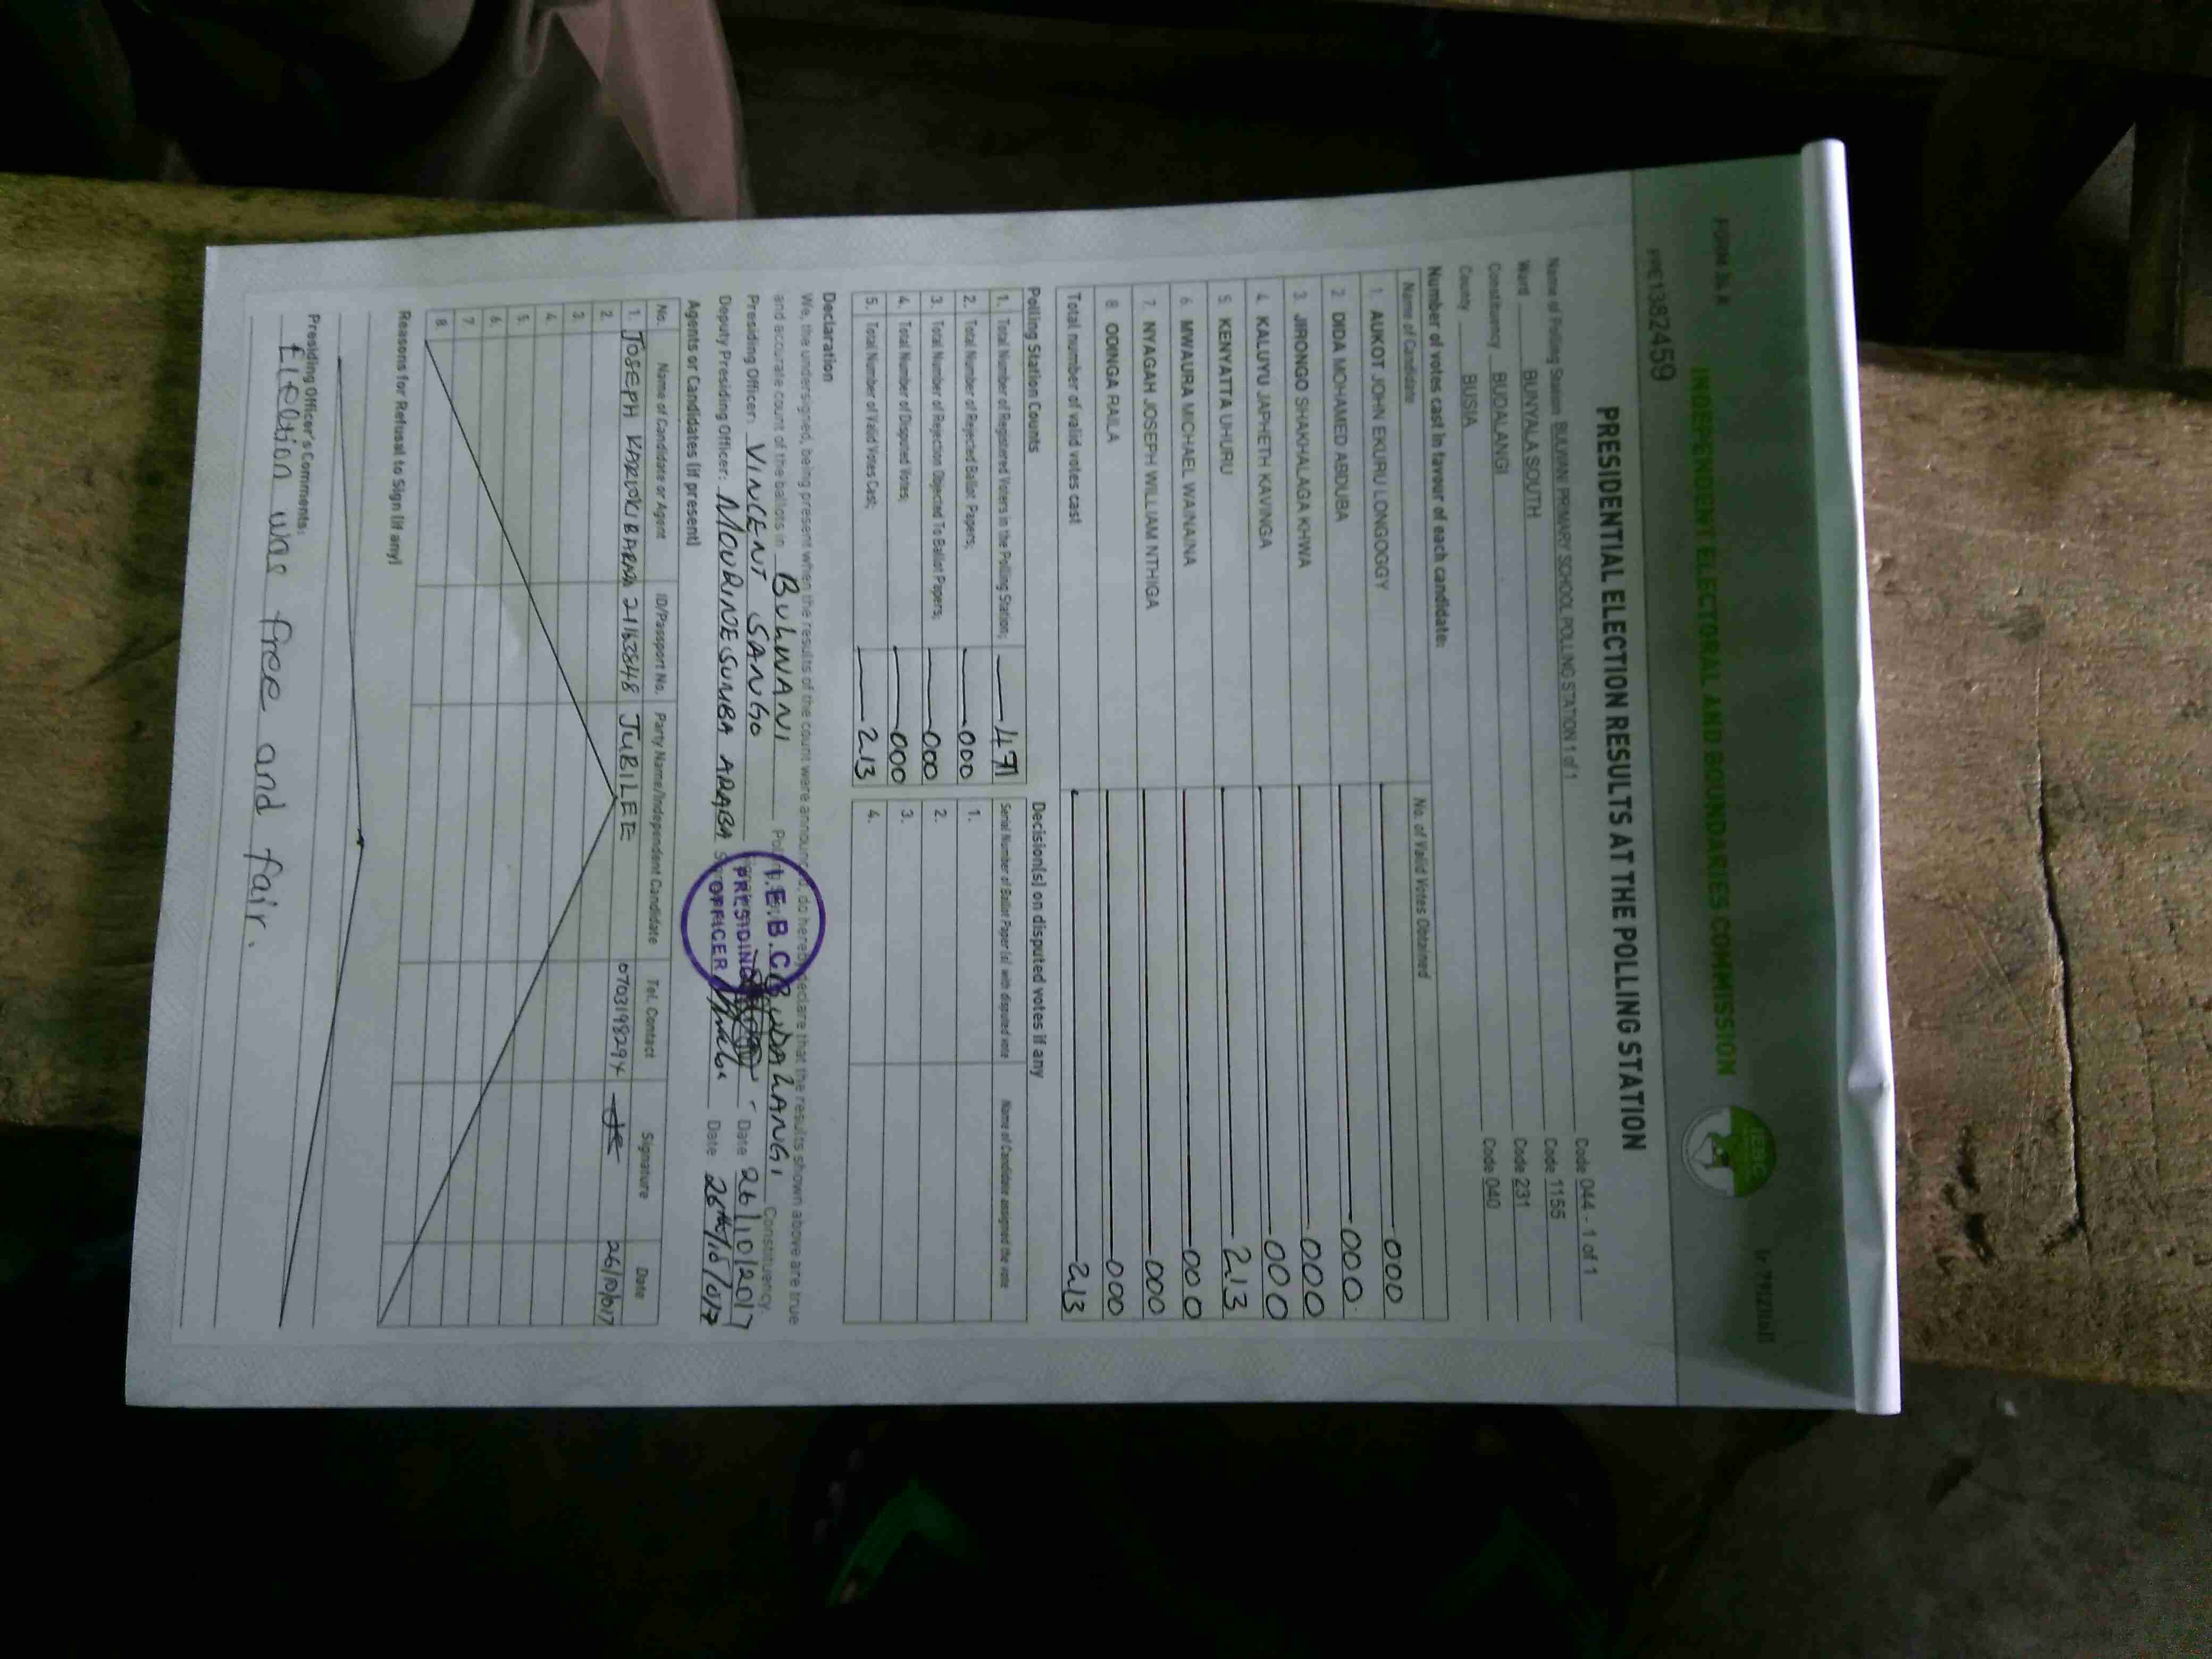 FORM 34 A
INDEPENDENT ELECTORAL AND BOUNDARIES COMMISSION
IEBC
PRE1382459
PRESIDENTIAL ELECTION RESULTS AT THE POLLING STATION
Name of Polling Station BULWANI PRIMARY SCHOOL POLLING STATION 1 of 1 Code 044 - 1 of 1
Ward BUNYALA SOUTH Code 1155
Constituency BUDALANGI Code 231
County BUSIA Code 040
Number of votes cast in favour of each candidate:
Name of Candidate No. of Valid Votes Obtained
1. AUKOT JOHN EKURU LONGOGGY 000
2. DIDA MOHAMED ABDUBA 000
3. JIRONGO SHAKHALAGA KHWA 000
4. KALUYU JAPHETH KAVINGA 000
5. KENYATTA UHURU 213
6. MWAURA MICHAEL WAINAINA 000
7. NYAGAH JOSEPH WILLIAM NTHIGA 000
8. ODINGA RAILA 000
Total number of valid votes cast 213
Polling Station Counts
1. Total Number of Registered Voters in the Polling Station; 471
2. Total Number of Rejected Ballot Papers; 000
3. Total Number of Rejection Objected To Ballot Papers; 000
4. Total Number of Disputed Votes; 000
5. Total Number of Valid Votes Cast; 213
Decision(s) on disputed votes if any
Serial Number of Ballot Paper (s) with disputed vote Name of Candidate assigned the vote
1.
2.
3.
4.
Declaration
We, the undersigned, being present when the results of the count were announced, do hereby declare that the results shown above are true
and accurate count of the ballots in BULWANI Polling BUDALANGI Constituency.
Presiding Officer: VINCENT SANGO Date 26/10/2017
Deputy Presiding Officer: MOURINE SUMBA ARABA Date 26th/10/017
I.E.B.C
PRESIDING
OFFICER
Agents or Candidates (if present)
No. Name of Candidate or Agent ID/Passport No. Party Name/Independent Candidate Tel. Contact Signature Date
1. JOSEPH KARIOKI BARAZA 21163848 JUBILEE 26/10/017
2.
3.
4.
5.
6.
7.
8.
Reasons for Refusal to Sign (if any)
Presiding Officer's Comments:
Election was free and fair.